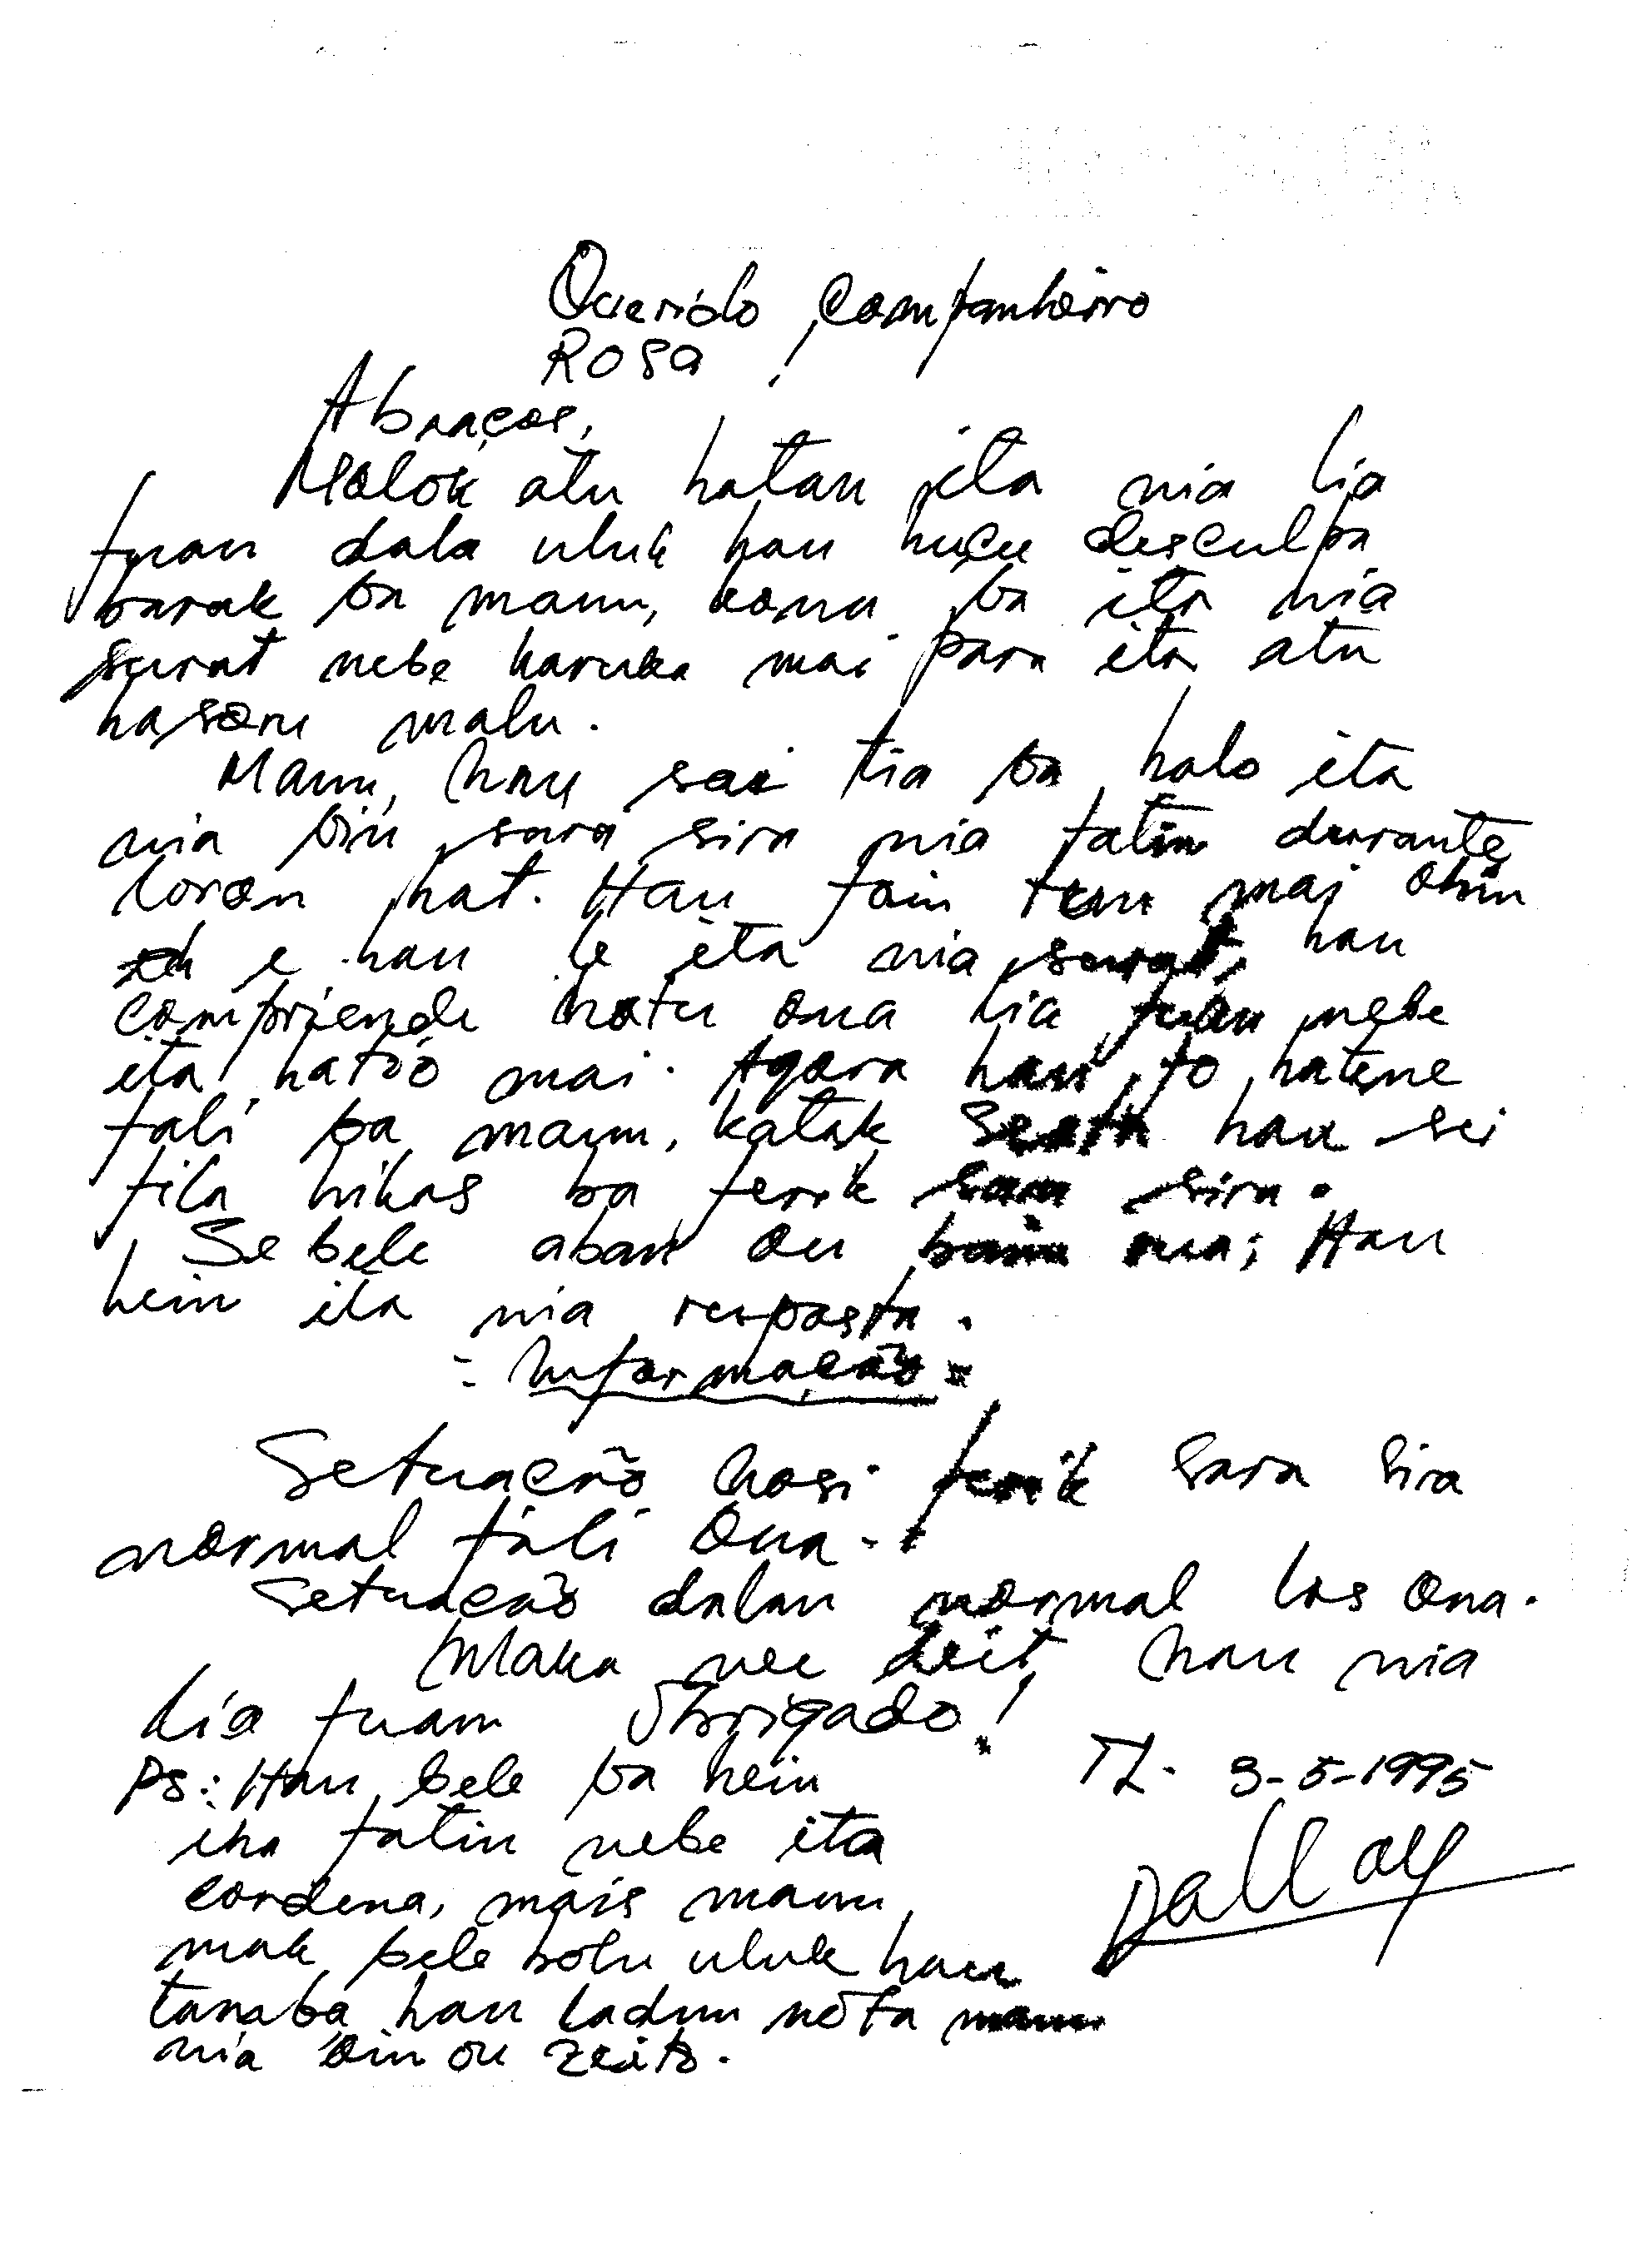 Querido Companheiro
ROSA!
Abraços,
Molok atu hatan ita nia lia
fuan dala uluk hau hucu desculpa
barak ba maun, kona ba ita nia
surat nebe haruka mai para ita atu
hasoru malu.
Maun, hau sai tia ba halo ita
nia bin sara sira nia fatin durante
loron hat. Hau foin tun mai ohin
e hau le ita nia surat, hau
compriende hotu ona lia fuan nebe
ita hatoo mai. Agora hau fo hatene
fali ba maun, katak hau sei
fila hikas ba ferik sara sira.
Se bele aban ou bain rua; Hau
hein ita nia resposta.
= Informação =
Setuação hosi ferik sara sira
normal fali ona.
Setuação dalan normal los ona.
Maka nee deit hau nia
lia fuan Obrigado!
Ps: Hau bele ba hein
iha fatin nebe ita
cordena, mais maun
mak bele bolu uluk hau
tanaba hau ladun nota maun
nia oin ou zeito.
TL. 3-5-1995